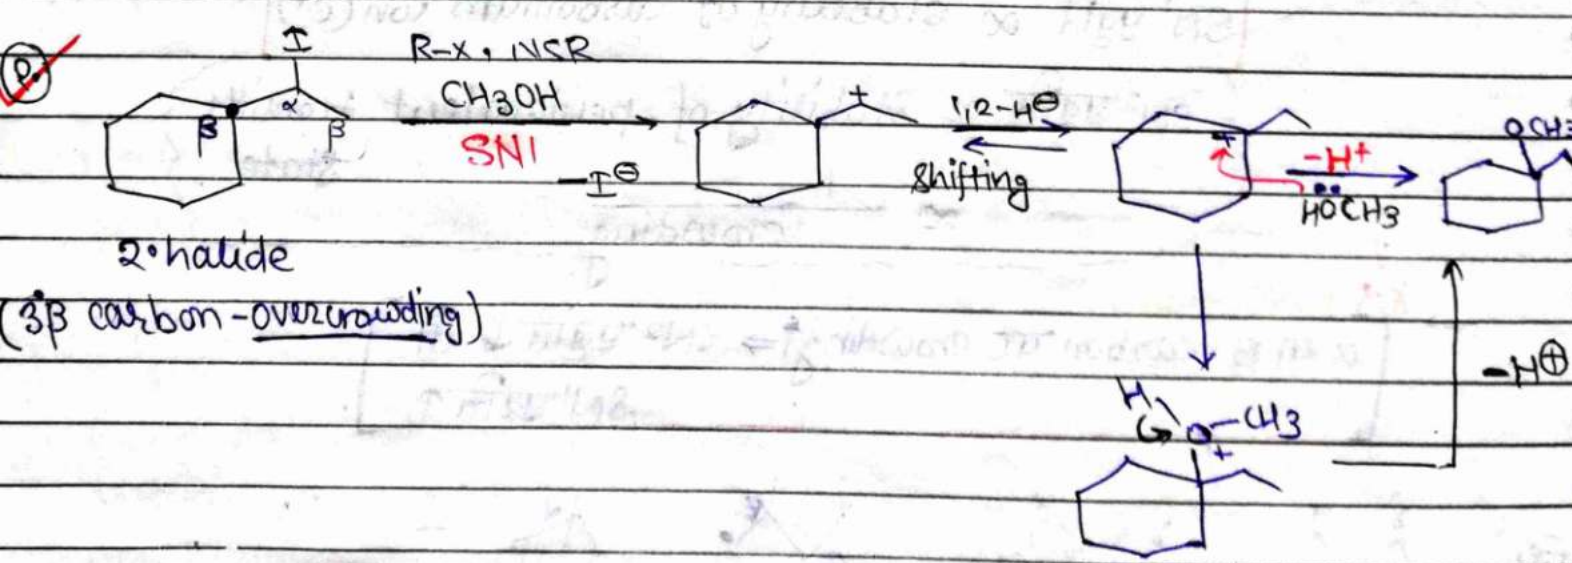 P.
I
α
β
β
R-X, NSR
CH3OH
SN1
-I⊖
+
1,2-H⊖
Shifting
+
-H+
HOCH3
OCH3
2° halide
(3°β carbon-overcrowding)
-H⊕
H
O-CH3
+